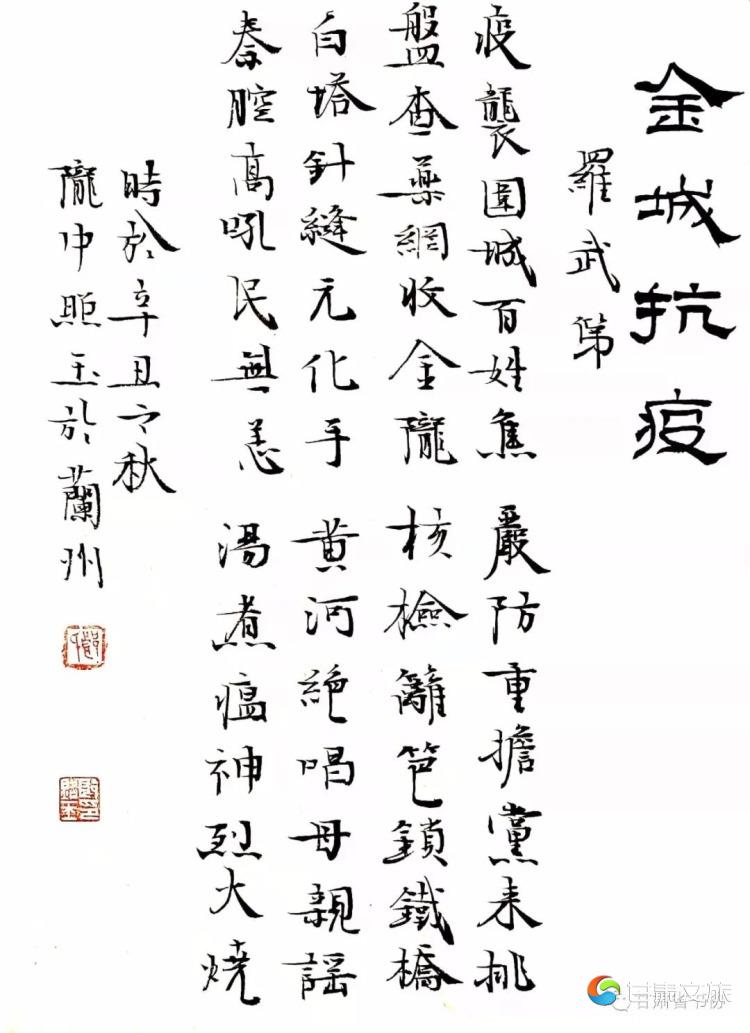 金城抗疫
羅武第
疫襲圍城百姓焦 嚴防重擔黨来挑
盤查藥網收金隴 核檢籬笆鎖鐵橋
白塔針縫元化手 黄河絕唱母親謡
秦腔高吼民無恙 湯煮瘟神烈火燒
時於辛丑之秋
隴中照玉於蘭州
甘肃文旅
甘肃省书协